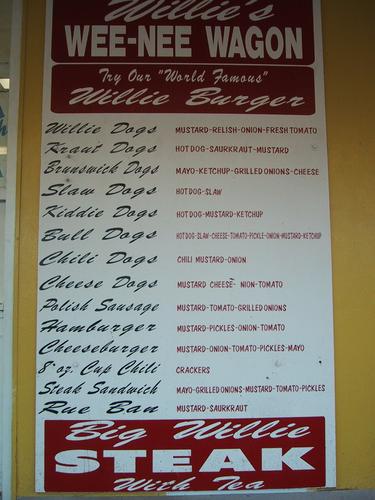 Willie's
WEE-NEE WAGON
Try Our "World Famous"
Willie Burger
Willie Dogs MUSTARD-RELISH-ONION-FRESH TOMATO
Kraut Dogs HOT DOG-SAURKRAUT-MUSTARD
Brunswick Dogs MAYO-KETCHUP-GRILLED ONIONS-CHEESE
Slaw Dogs HOT DOG-SLAW
Kiddie Dogs HOT DOG-MUSTARD-KETCHUP
Bull Dogs HOT DOG-SLAW-CHEESE-TOMATO-PICKLE-ONION-MUSTARD-KETCHUP
Chili Dogs CHILI MUSTARD-ONION
Cheese Dogs MUSTARD CHEESE- NION-TOMATO
Polish Sausage MUSTARD-TOMATO-GRILLED ONIONS
Hamburger MUSTARD-PICKLES-ONION-TOMATO
Cheeseburger MUSTARD-ONION-TOMATO-PICKLES-MAYO
8 oz. Cup Chili CRACKERS
Steak Sandwich MAYO-GRILLED ONIONS-MUSTARD-TOMATO-PICKLES
Rue Ban MUSTARD-SAURKRAUT
Big Willie
STEAK
With Tea